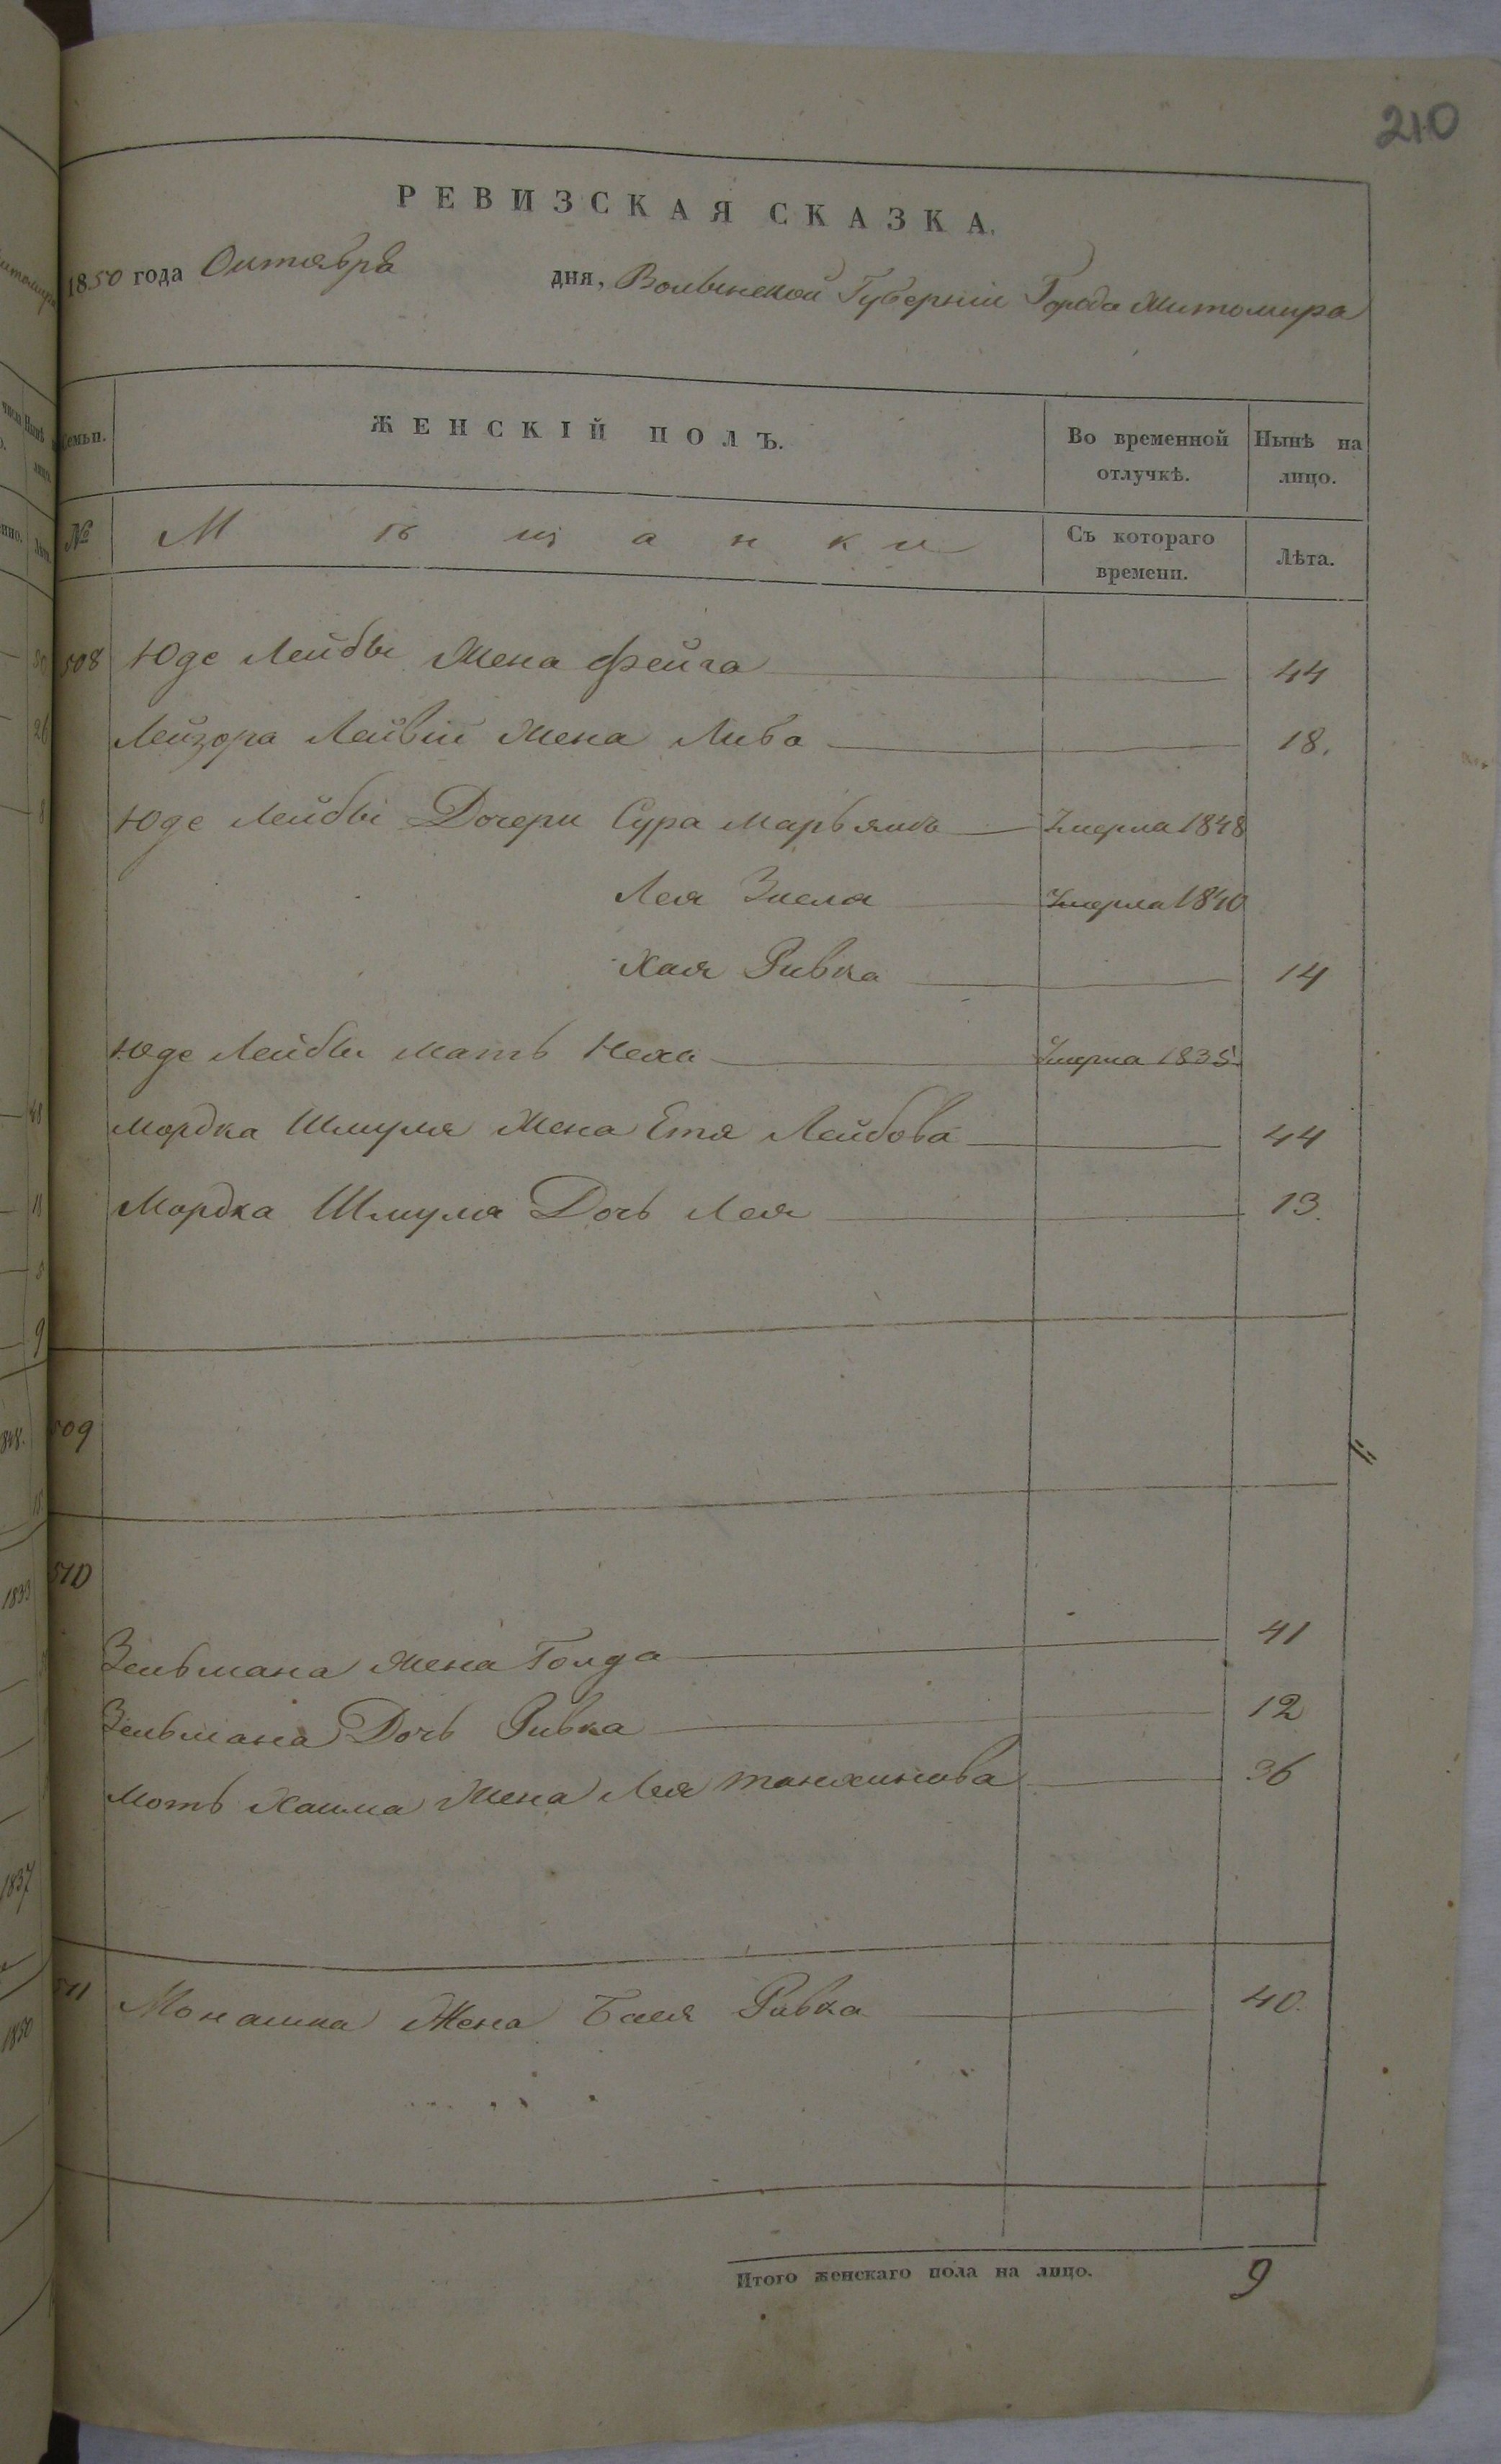 210
РЕВИЗСКАЯ СКАЗКА.
1850 года Октября дня, Волынской Губерніи Города Житомира
Семьи. ЖЕНСКІЙ ПОЛЪ. Во временной отлучкѣ. Нынѣ на лицо.
№ Мѣщанки Съ котораго времени. Лѣта.
508 Юде Лейбы Жена Фейга 44
Лейзора Лейвіи Жена Либа 18.
Юде Лейбы Дочери Сура Марьямъ Умерла 1848
Лея Умерла 1840
Хая Ривка 14
Юде Лейбы мать Неха Умерла 1835.
Мордка Шмуля Жена Етя Лейбова 44
Мордка Шмуля Дочь Лея 13.
509
510
Зельмана Жена Голда 41
Зельмана Дочь Ривка 12
Моть Хаима Жена Лея 36
511 Монашка Жена Бася Ривка 40.
Итого женскаго пола на лицо. 9